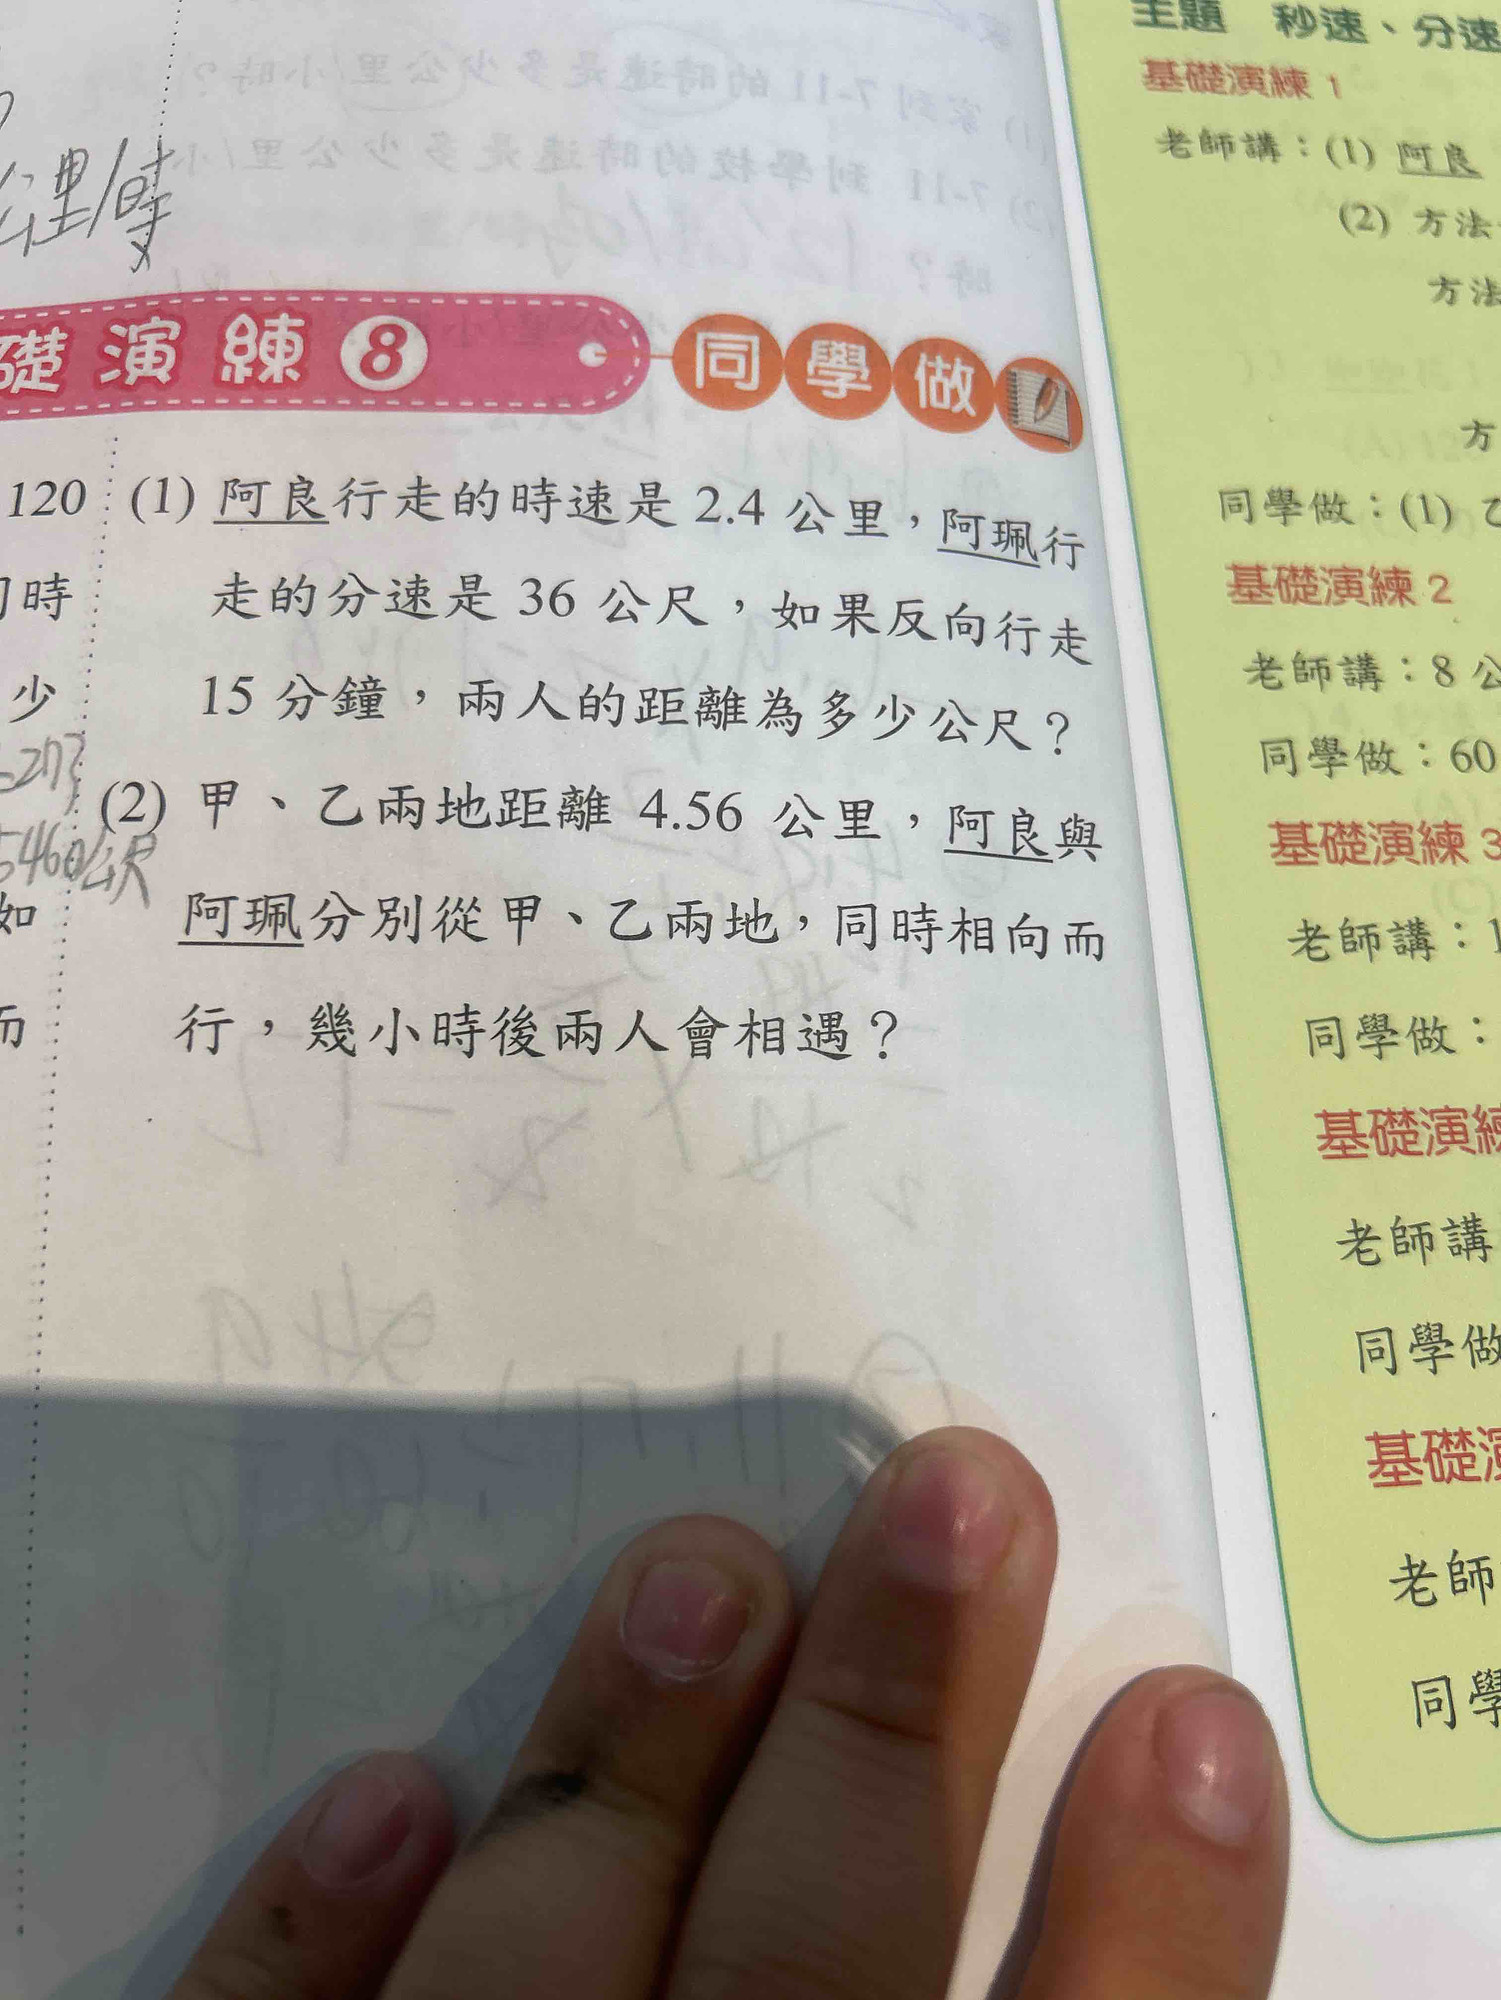 公里/時
礎演練8 同學做
120
時
少
5460公尺
如
而
(1) 阿良行走的時速是 2.4 公里，阿珮行
走的分速是 36 公尺，如果反向行走
15 分鐘，兩人的距離為多少公尺？
(2) 甲、乙兩地距離 4.56 公里，阿良與
阿珮分別從甲、乙兩地，同時相向而
行，幾小時後兩人會相遇？
主題 秒速、分速
基礎演練 1
老師講：(1) 阿良
(2) 方法
方法
方
同學做：(1) 乙
基礎演練 2
老師講：8 公
同學做：60
基礎演練 3
老師講：1
同學做：
基礎演練
老師講
同學做
基礎演
老師
同學